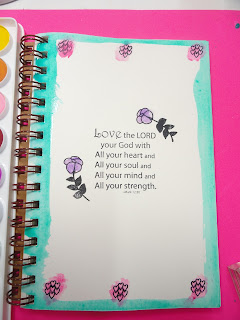 LOVE the LORD
your God with
All your heart and
All your soul and
All your mind and
All your strength.